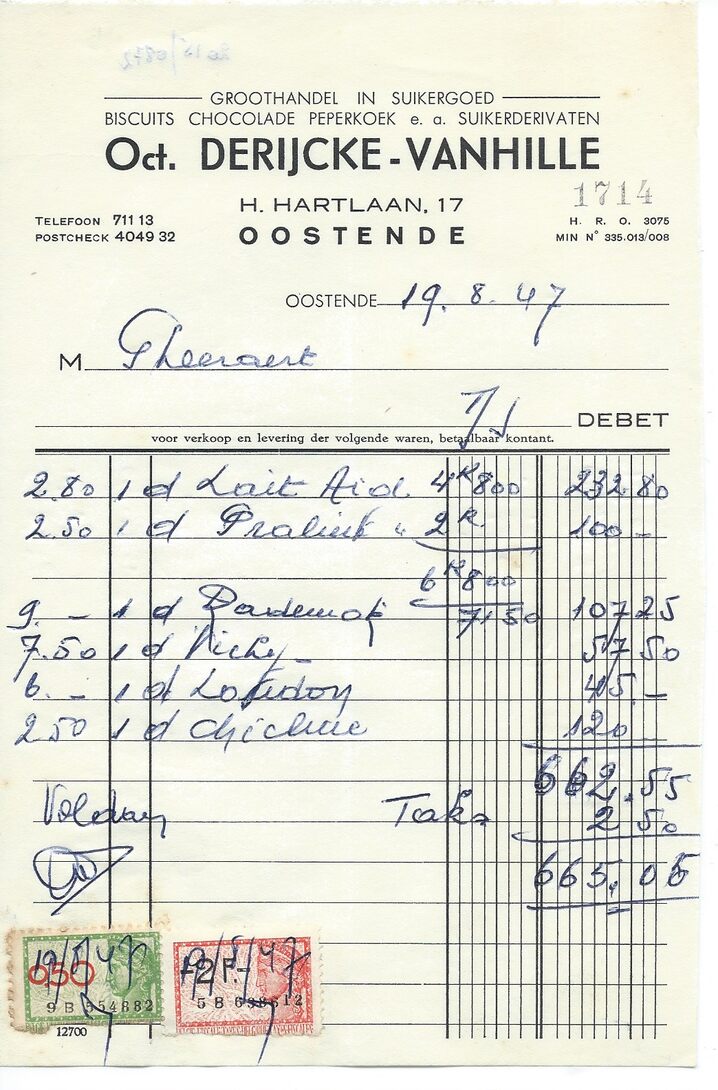 GROOTHANDEL IN SUIKERGOED
BISCUITS CHOCOLADE PEPERKOEK e. a. SUIKERDERIVATEN
Oct. DERIJCKE-VANHILLE
H. HARTLAAN, 17
OOSTENDE
TELEFOON 711 13
POSTCHECK 4049 32
1714
H. R. O. 3075
MIN N° 335.013/008
OOSTENDE 19.8.47
M
DEBET
voor verkoop en levering der volgende waren, betaalbaar kontant.
2.80 1 d Lait Aid. 4K800 232 80
2.50 1 d 2K 100 -
6K800
9. - 1 d 7150 107 25
7.50 1 d Vichy 57 50
6. - 1 d London 45. -
2.50 1 d 120 -
662.55
Voldaan Taks 2 50
665.05
0,50 19/8/47
9 B 554882
2 F. 19/8/47
5 B
12700